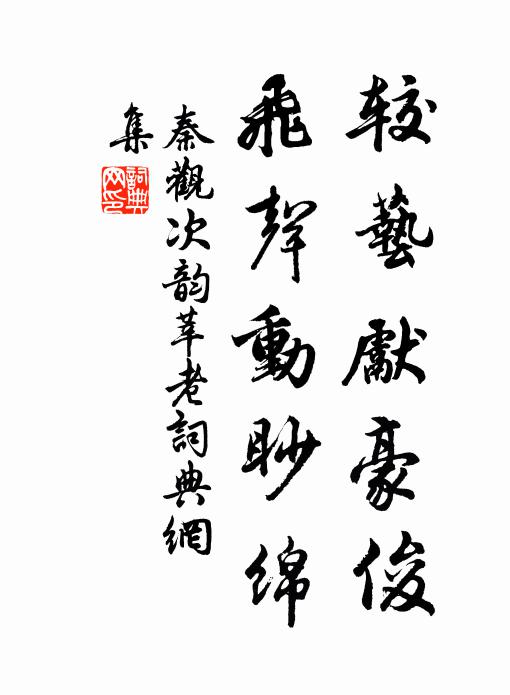 较藝獻豪俊
飛聲動眇綿
秦觀次韵莘老詞典網
集
詞典
网印